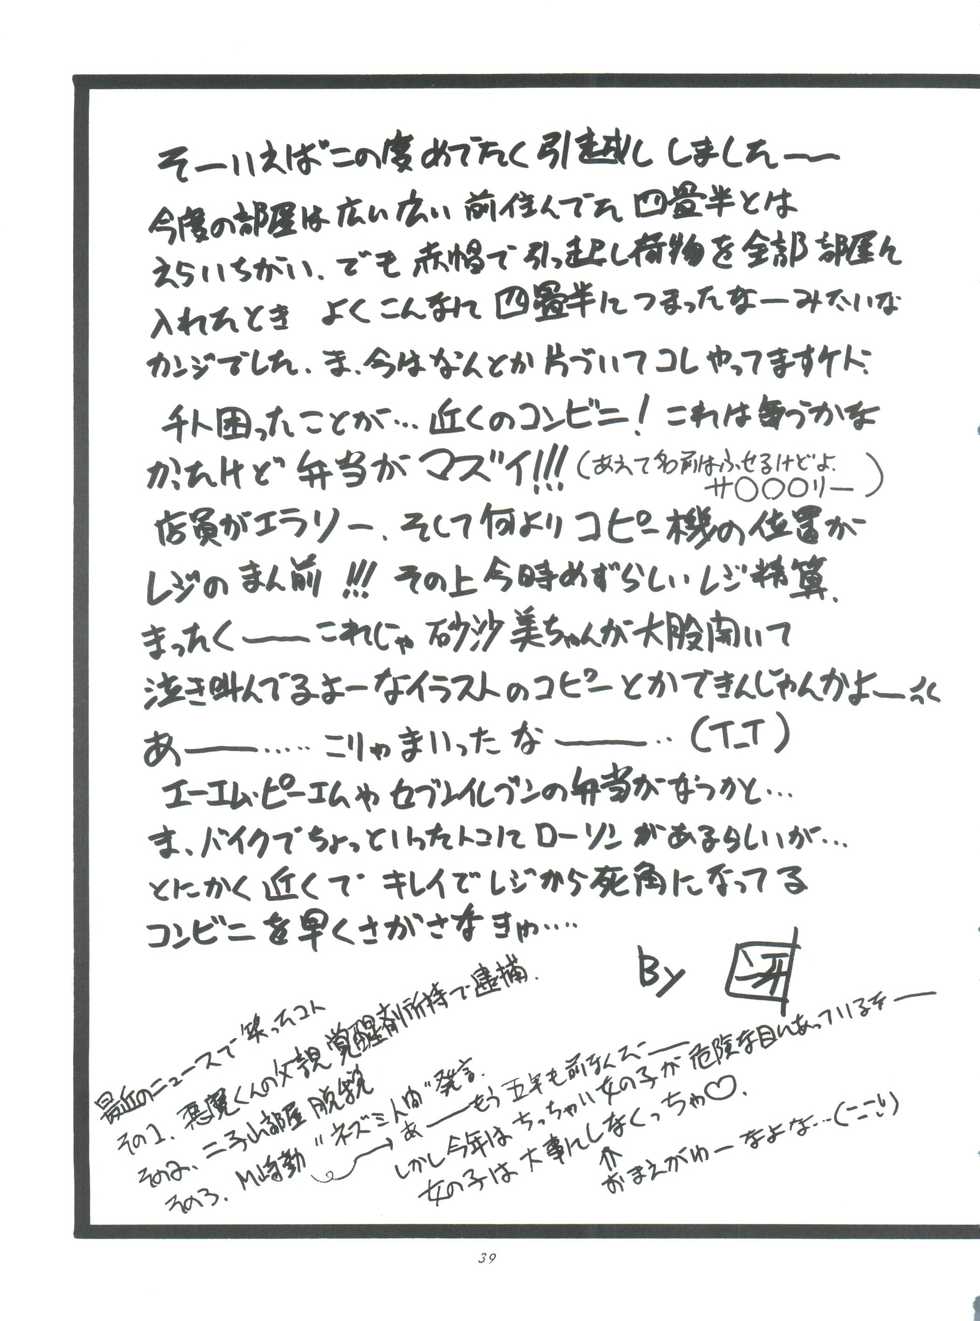 そーいえばこの度めでたく引越ししましたーー
今度の部屋は広い広い 前住んでた四畳半とは
えらいちがい、でも赤帽で引っ越し荷物を全部部屋に
入れたとき よくこんなに四畳半につまったなーみたいな
カンジでした、ま、今はなんとか片づいてコレやってますケド、
チト困ったことが…近くのコンビニ！これは毎うかな
かったけど弁当がマズイ!!!(あえて名前はふせるけどよ、
サ〇〇〇リー)
店員がエラソー、そして何よりコピー機の位置が
レジのまん前!!! その上今時めずらしいレジ精算、
まったくーーこれじゃ砂沙美ちゃんが大股開いて
泣き叫んでるよーなイラストのコピーとかできんじゃんかよー
あーー…… こりゃまいったなーー‥(T_T)
エーエム・ピーエムやセブンイレブンの弁当がなつかと…
ま、バイクでちょっといったトコにローソンがあるらしいが…
とにかく近くでキレイでレジから死角になってる
コンビニを早くさがさなきゅ‥‥
By
最近のニュースで笑ったコト
その1、悪魔くんの父親覚醒剤所持で逮捕.
その2、二子山部屋脱税
その3、M崎勤"ネズミ人間"発言.
→あーーもう五年も前なんだーー
しかし今年はちっちゃい女の子が危険な目にあっているなーー
女の子は大事にしなくっちゃ♡.
↑
おまえがゆーなよな…(ニニ;)
39